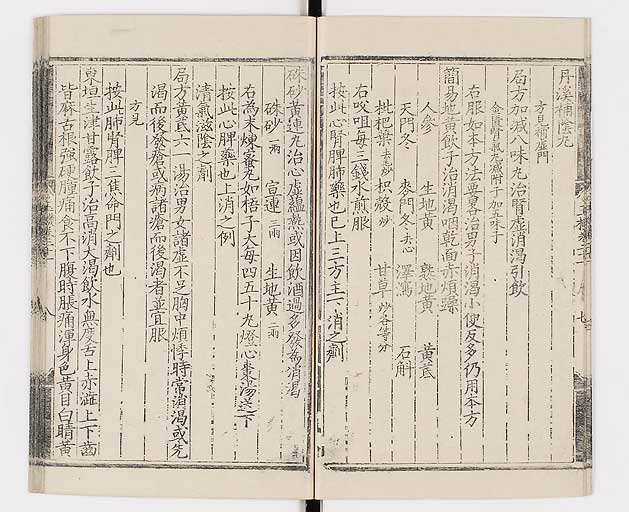 丹溪補陰丸
方見補虛門
局方加減八味丸治腎虛消渴引飲
金匱腎氣丸減附子加五味子
右服如本方法要畧治男子消渴小便反多仍用本方
簡易地黃飲子治消渴咽乾面赤煩躁
人參 生地黃 熟地黃 黃茋
天門冬 麥門冬去心 澤瀉 石斛
枇杷葉去毛炒 枳殼炒 甘草炒各等分
右㕮咀每三錢水煎服
按此心腎脾肺藥也已上三方主下消之劑
硃砂黃連丸治心虛蘊熱或因飲酒過多發為消渴
硃砂一兩 宣連三兩 生地黃二兩
右為末煉蜜丸如梧子大每四五十丸燈心棗湯送下
按此心脾藥也上消之例
清氣滋陰之劑
局方黃茋六一湯治男女諸虛不足胸中煩悸時常消渴或先
渴而後發瘡或病諸瘡而後渴者並宜服
方見
按此肺腎脾三焦命門之劑也
東垣生津甘露飲子治高消大渴飲水無度舌上赤澁上下齒
皆麻舌根強硬腫痛食不下腹時脹痛渾身色黃目白睛黃